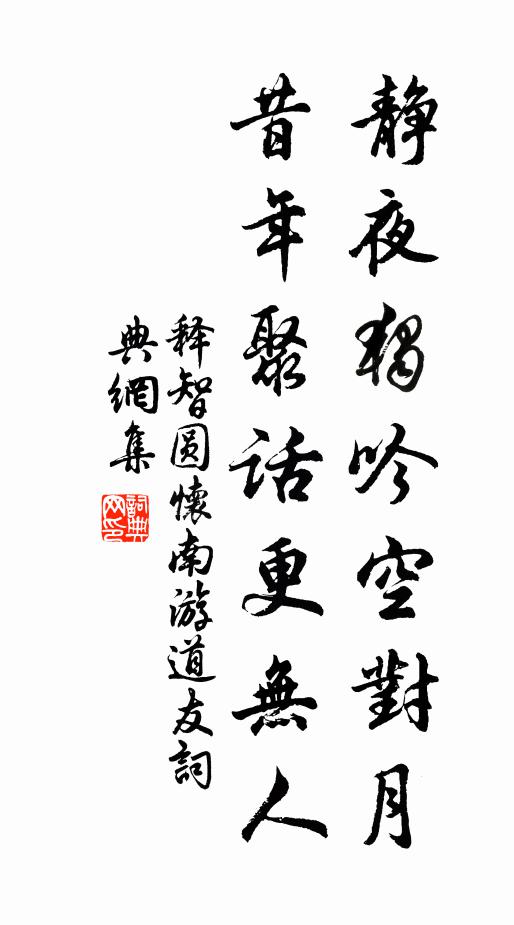 靜夜獨吟空對月
昔年聚話更無人
释智圆懷南游道友詞
典網集
詞典
网印